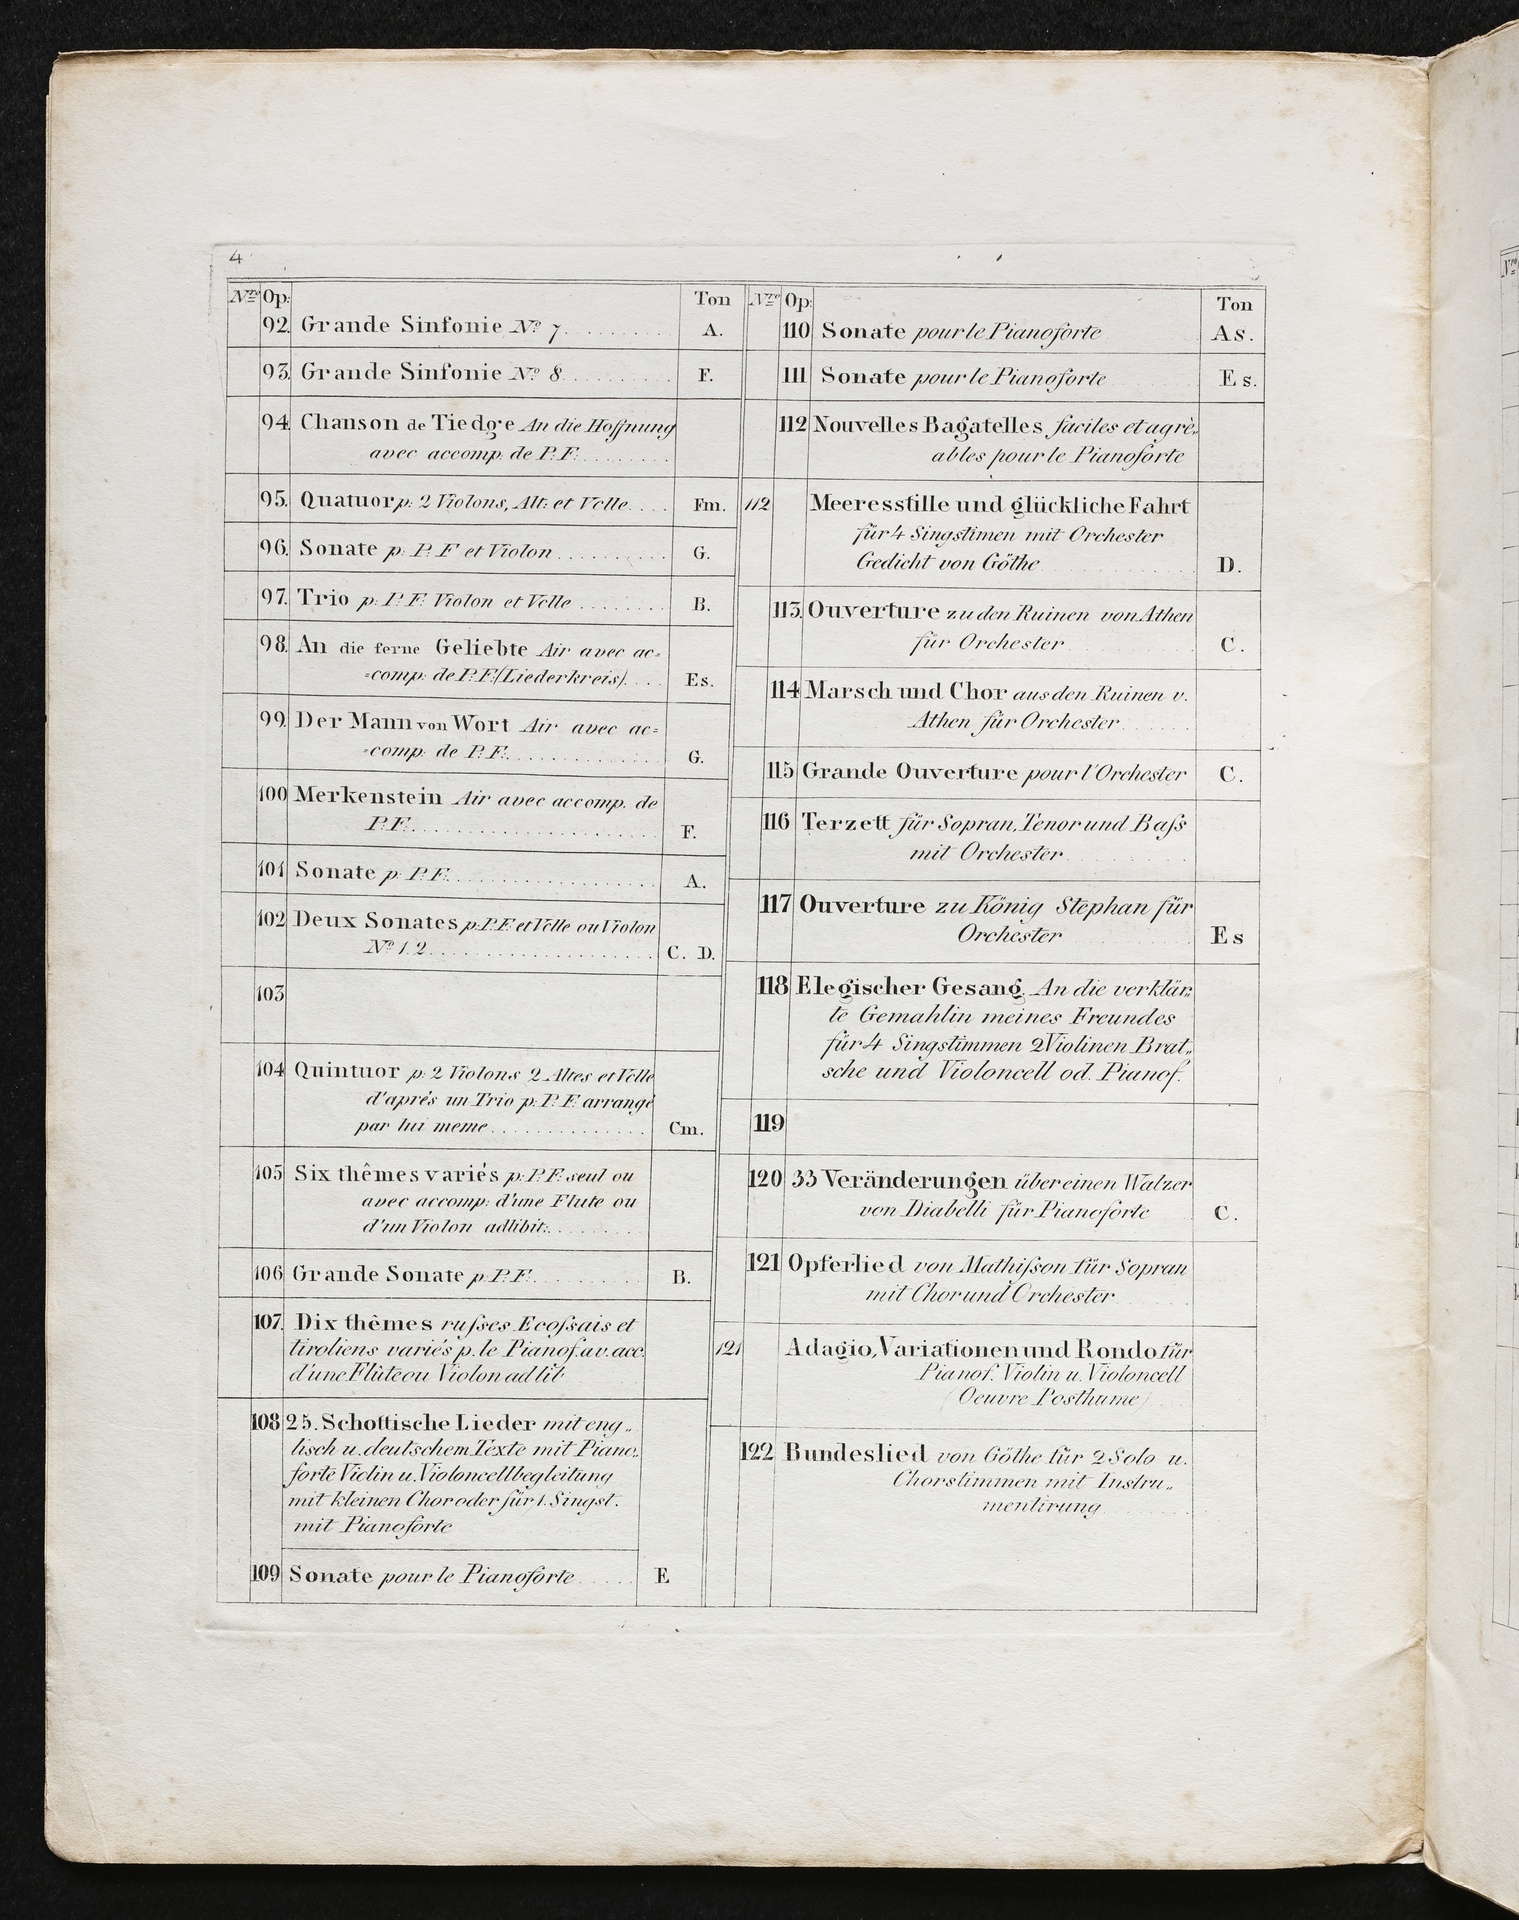 4
Nro Op: Ton
92. Grande Sinfonie No. 7. A.
93. Grande Sinfonie No. 8. F.
94. Chanson de Tiedge An die Hoffnung
avec accomp. de P.F.
95. Quatuor p: 2 Violons, Alt: et Velle. Fm.
96. Sonate p: P.F et Violon G.
97. Trio p: P.F: Violon et Velle B.
98. An die ferne Geliebte Air avec ac=
=comp: de P.F.(Liederkreis). Es.
99. Der Mann von Wort Air avec ac=
=comp: de P.F. G.
100 Merkenstein Air avec accomp. de
P.F. F.
101 Sonate p: P.F. A.
102 Deux Sonates p:P.F. et Velle ou Violon
No. 1. 2. C. D.
103
104 Quintuor p: 2 Violons 2 Altes et Velle
d'aprés un Trio p: P.F. arrangé
par lui meme Cm.
105 Six thêmes variés p: P.F. seul ou
avec accomp: d'une Flute ou
d'un Violon adlibit:
106 Grande Sonate p: P.F. B.
107. Dix thêmes ruſses Ecoſsais et
tiroliens variés p. le Pianof. av. acc.
d'une Flûte ou Violon ad lib
108 25. Schottische Lieder mit eng„
lisch u. deutschem Texte mit Piano„
forte Violin u. Violoncellbegleitung
mit kleinen Chor oder für 1. Singst.
mit Pianoforte
109 Sonate pour le Pianoforte E
Nro Op: Ton
110 Sonate pour le Pianoforte As.
111 Sonate pour le Pianoforte Es.
112 Nouvelles Bagatelles faciles et agrè„
ables pour le Pianoforte
112 Meeresstille und glückliche Fahrt
für 4 Singstimen mit Orchester
Gedicht von Göthe D.
113. Ouverture zu den Ruinen von Athen
für Orchester C.
114 Marsch und Chor aus den Ruinen v.
Athen für Orchester
115 Grande Ouverture pour l'Orchester C.
116 Terzett für Sopran, Tenor und Baſs
mit Orchester
117 Ouverture zu König Stephan für
Orchester Es
118 Elegischer Gesang. An die verklär„
te Gemahlin meines Freundes
für 4 Singstimmen 2 Violinen Brat„
sche und Violoncell od. Pianof.
119
120 33 Veränderungen über einen Walzer
von Diabelli für Pianoforte C.
121 Opferlied von Mathiſson für Sopran
mit Chor und Orchester
121 Adagio, Variationen und Rondo für
Pianof. Violin u. Violoncell
(Oeuvre Posthume)
122 Bundeslied von Göthe für 2 Solo u.
Chorstimmen mit Instru„
mentirung
Nro